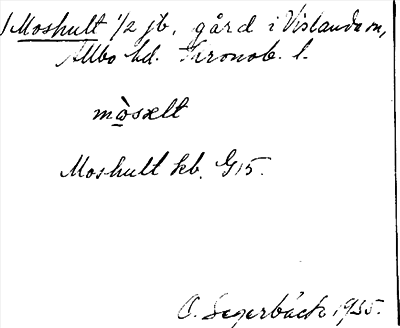 Moshult 1/2 jb. gård i Vislanda sn,
Allbo hd. Kronob. l.
mò̲sælt
Moshult kb. G15.
O. Segerbäck 1935.